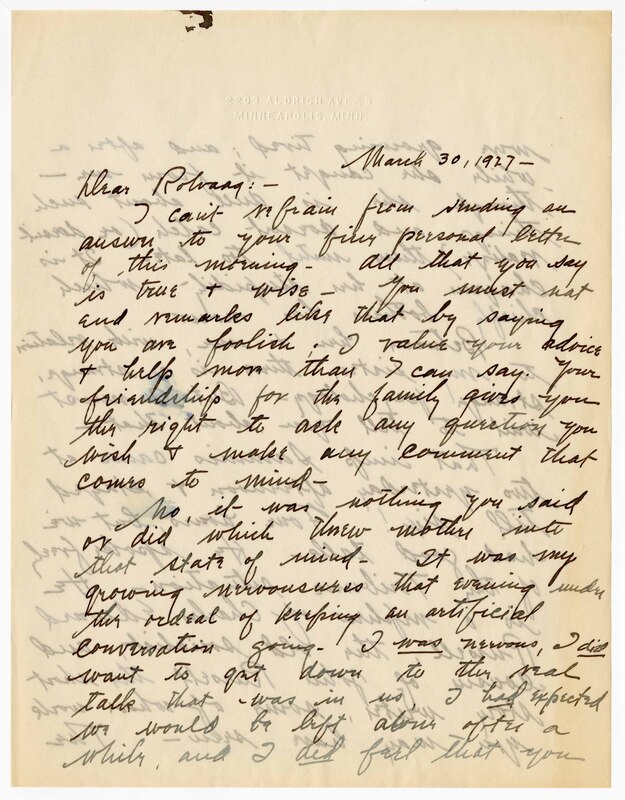 2203 ALDRICH AVE. S.
MINNEAPOLIS, MINN.
March 30, 1927 —
Dear Rolvaag: —
I can't refrain from sending an
answer to your fine personal letter
of this morning — All that you say
is true & wise — You must not
end remarks like that by saying
you are foolish. I value your advice
& help more than I can say. Your
friendship for the family gives you
the right to ask any question you
wish & make any comment that
comes to mind —
No, it was nothing you said
or did which threw mother into
that state of mind — It was my
growing nervousness that evening under
the ordeal of keeping an artificial
conversation going — I was nervous, I did
want to get down to the real
talk that was in us, I had expected
we would be left alone after a
while, and I did feel that you